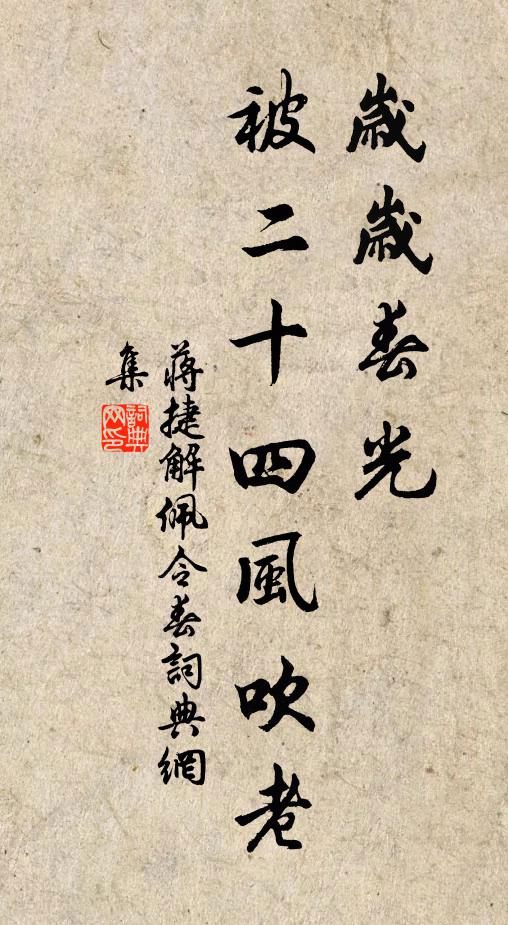 歲歲春光
被二十四風吹老
蔣捷解佩令春詞典網
集
詞典
网印